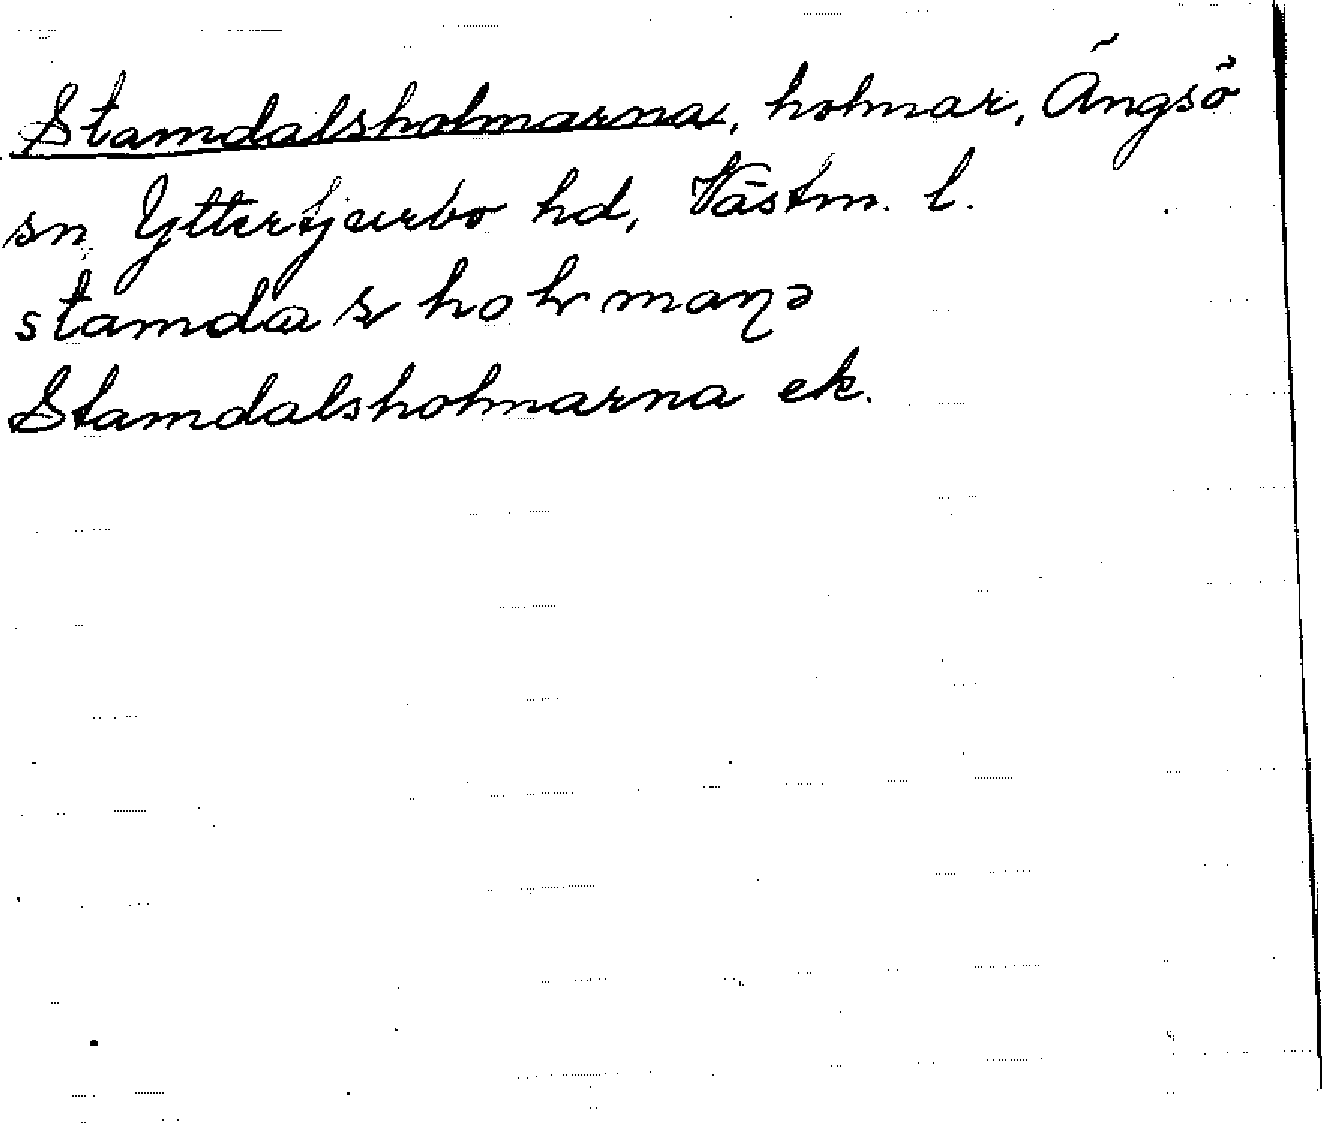 Stamdalsholmarna, holmar, Ängsö
sn Yttertjurbo hd, Västm. l.
stamdaꞎ holmaꞃə
Stamdalsholmarna ek.